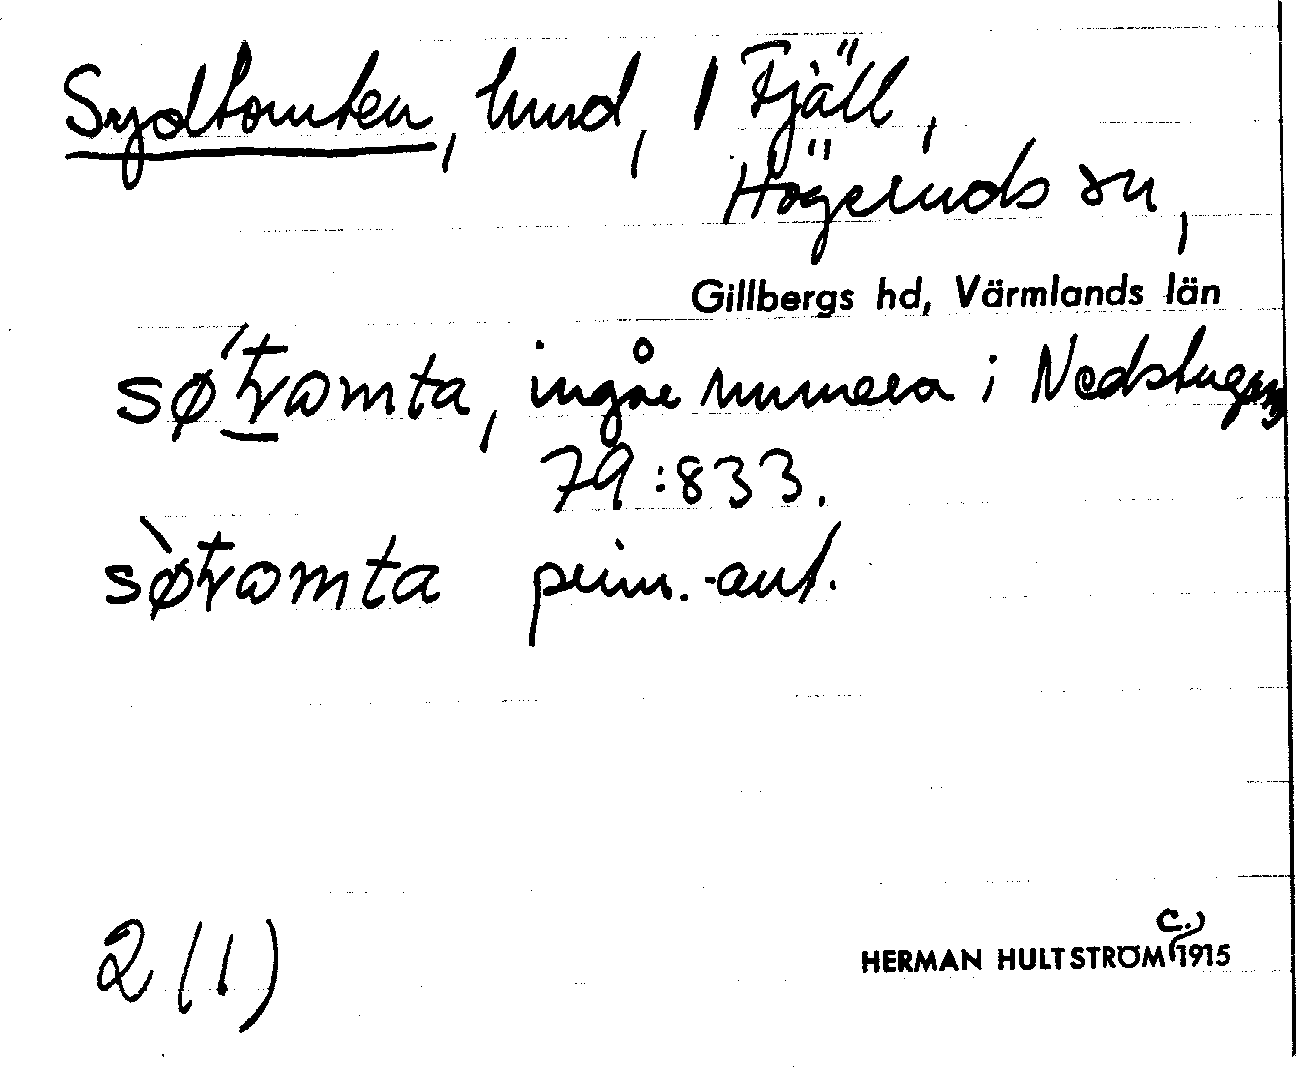 Sydtomten, hmd, 1 Fjäll,
Högeruds sn,
Gillbergs hd, Värmlands län
ingår numera i Nedstugan
79:833.
prim.-ant.
2 (1)
HERMAN HULTSTRÖM (c.) 1915